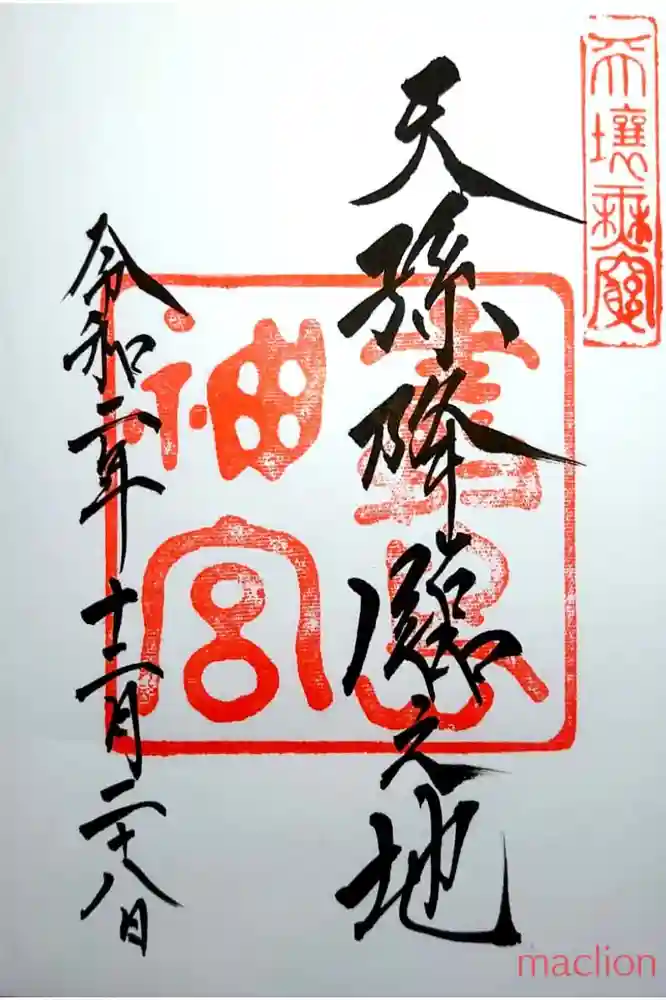 天壤無窮
天孫降臨之地
神宮
令和二年十二月二十八日
maclion